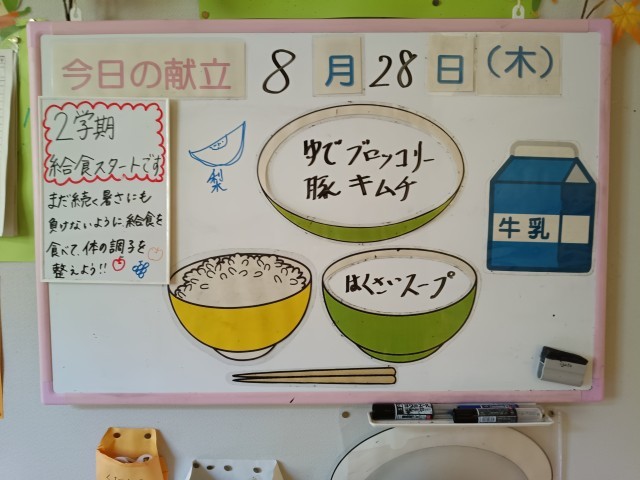 今日の献立 8月28日(木)
2学期
給食スタートです
まだ続く暑さにも
負けないように、給食を
食べて、体の調子を
整えよう!!
梨
ゆでブロッコリー
豚キムチ
牛乳
はくさいスープ